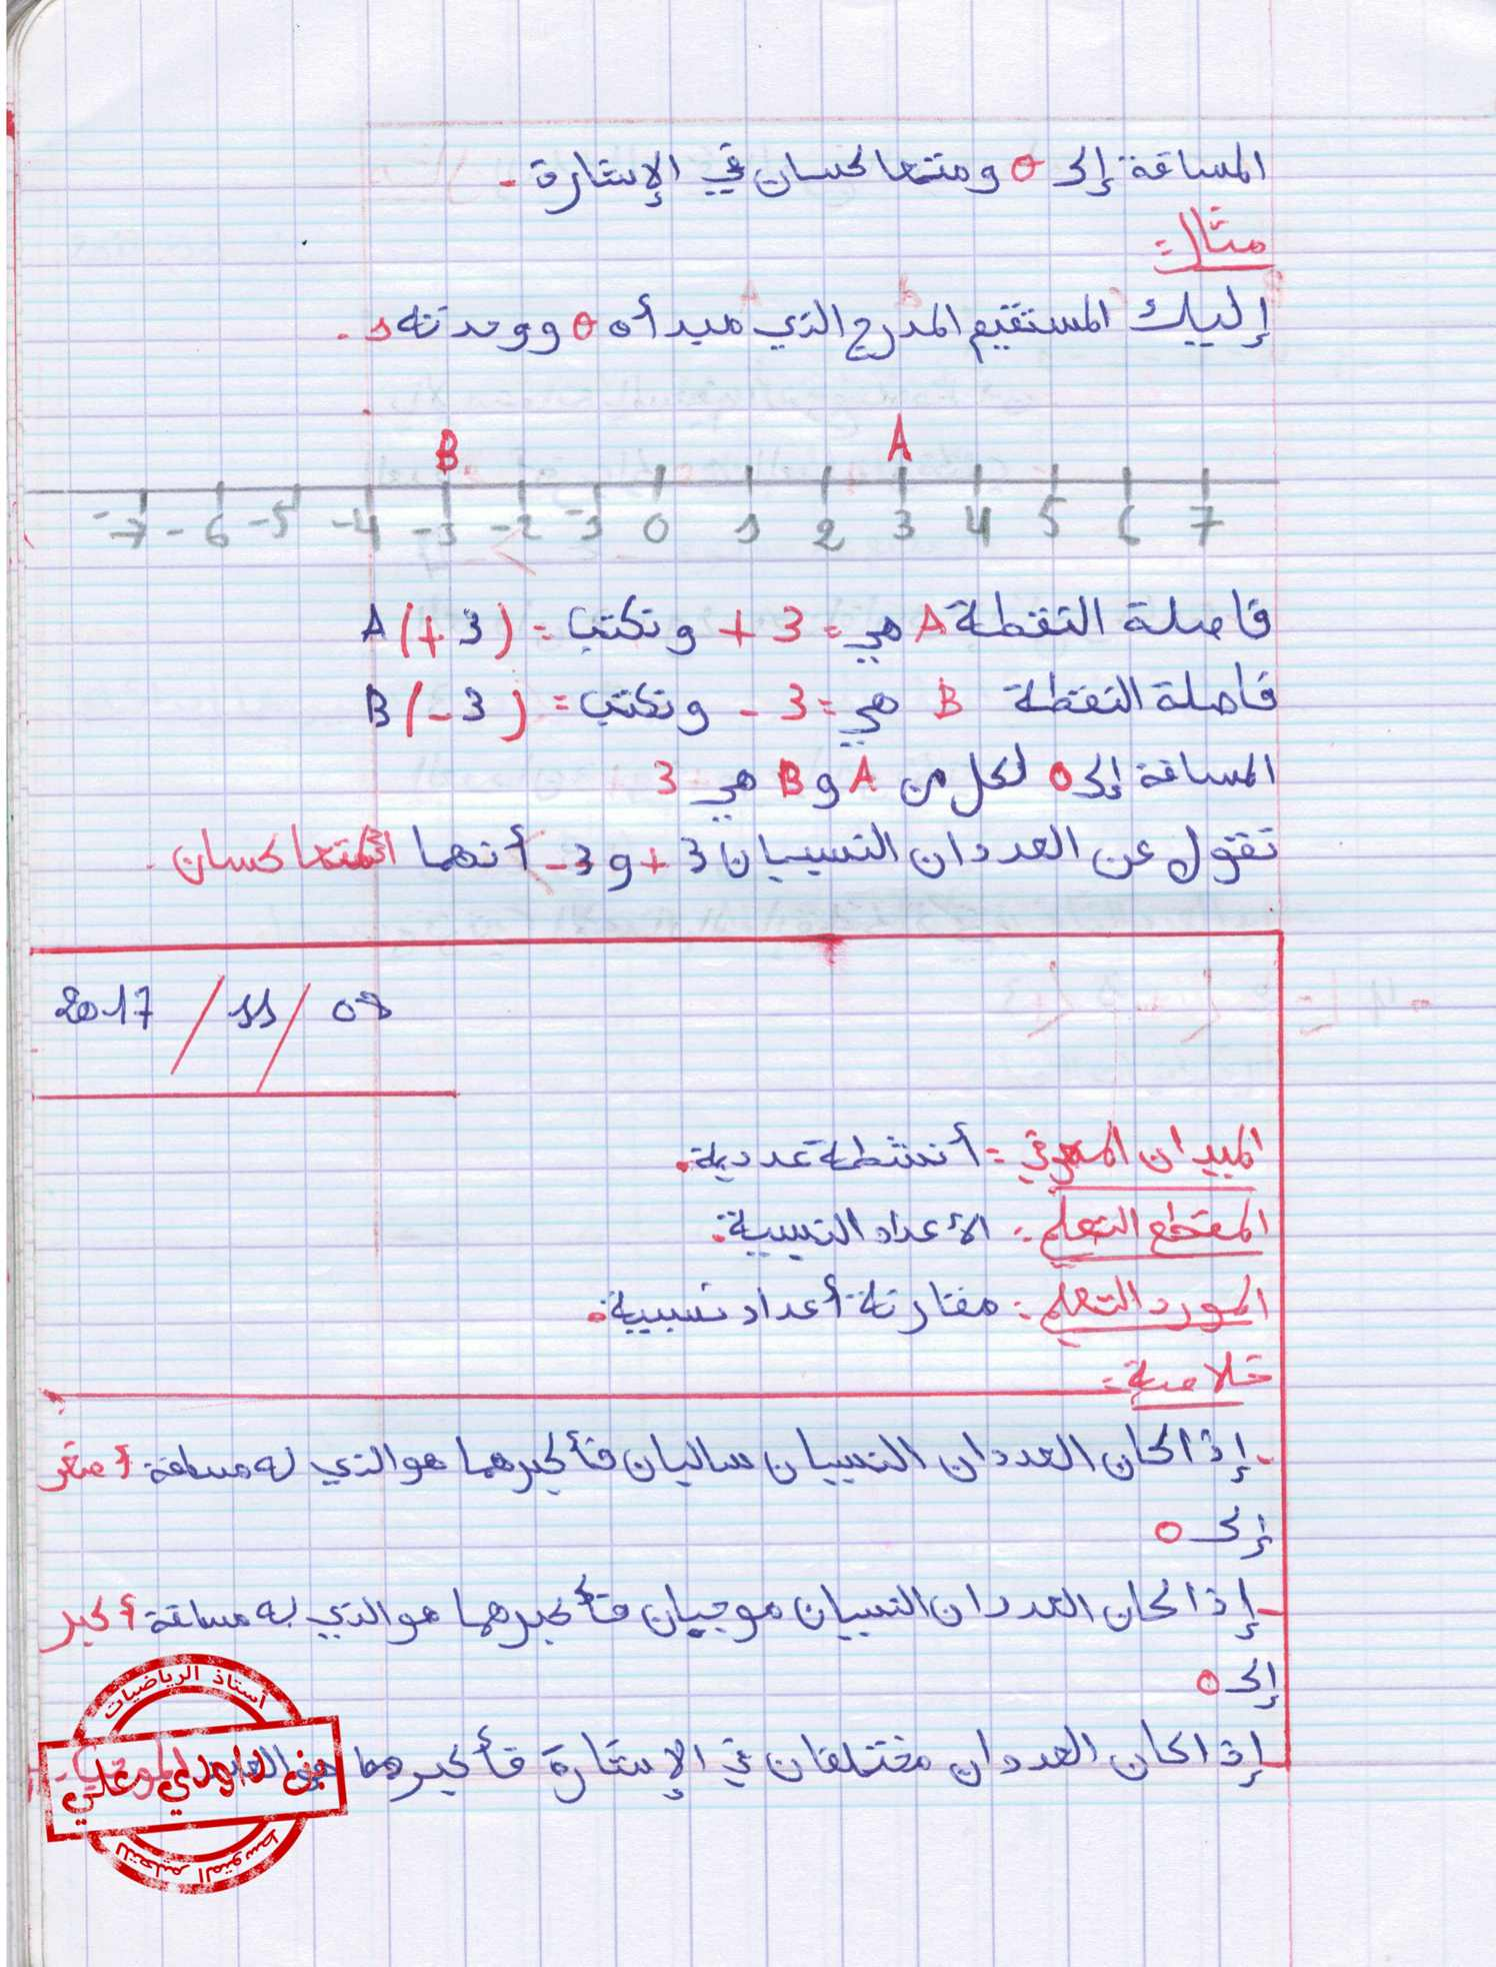 المسافة إلى 0 ومتعاكسان في الإشارة.
مثال:
إليك المستقيم المدرج الذي مبدأه 0 ووحدته 1.
B A
-7 -6 -5 -4 -3 -2 -1 0 1 2 3 4 5 6 7
فاصلة النقطة A هي: +3 ونكتب: A(+3)
فاصلة النقطة B هي: -3 ونكتب: B(-3)
المسافة إلى 0 لكل من A و B هي 3
نقول عن العددان النسبيان +3 و -3 أنهما متعاكسان.
2017 / 11 / 07
الميدان المعرفي: أنشطة عددية.
المقطع التعلمي: الأعداد النسبية.
المورد التعلمي: مقارنة أعداد نسبية.
خلاصة:
- إذا كان العددان النسبيان سالبان فأكبرهما هو الذي له مسافة أصغر
إلى 0
- إذا كان العددان النسبيان موجبان فأكبرهما هو الذي به مسافة أكبر
إلى 0
- إذا كان العددان مختلفان في الإشارة فأكبرهما هو العدد الموجب.
أستاذ الرياضيات
بن داودي علي
للتعليم المتوسط